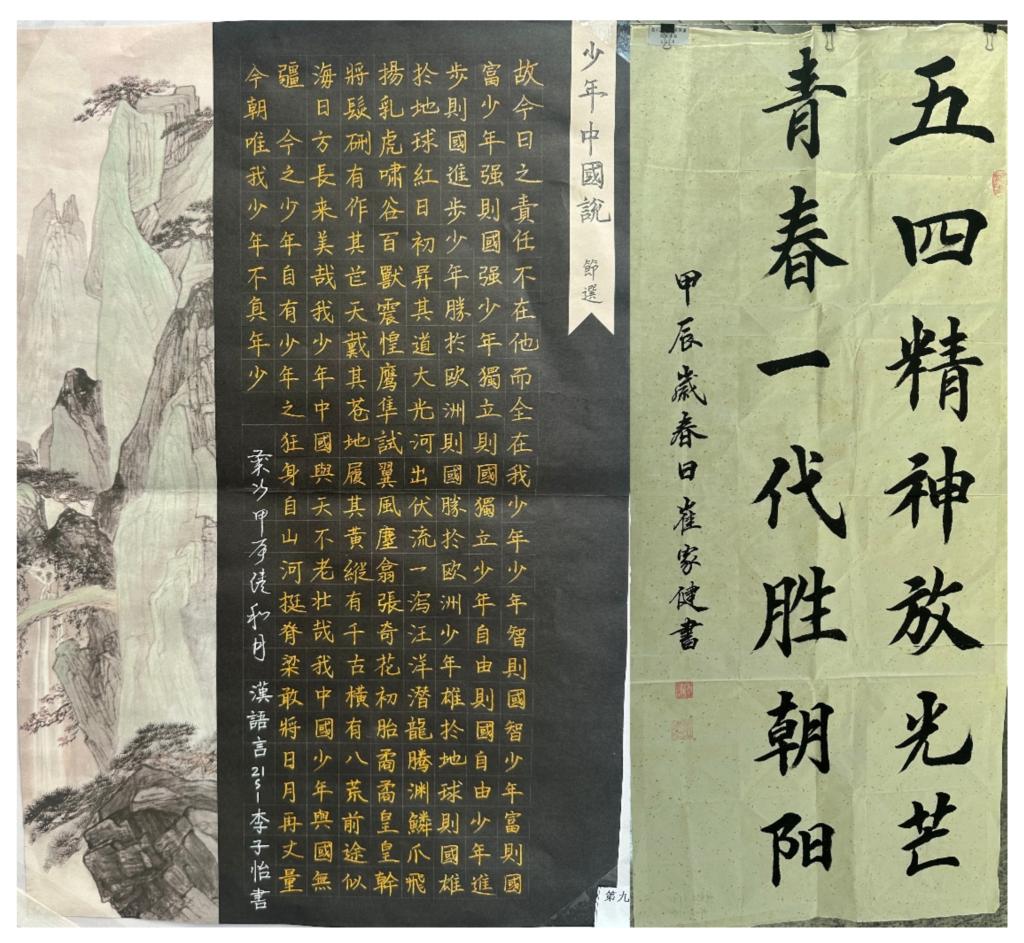 五四精神放光芒
青春一代胜朝阳
甲辰歲春日崔家健書
少年中國說 節選
故今日之責任不在他而全在我少年少年智則國智少年富則國
富少年强則國强少年獨立則國獨立少年自由則國自由少年進
步則國進步少年勝於歐洲則國勝於歐洲少年雄於地球則國雄
於地球紅日初昇其道大光河出伏流一瀉汪洋潛龍騰淵鱗爪飛
揚乳虎嘯谷百獸震惶鹰隼試翼風塵翕張奇花初胎矞矞皇皇幹
將髮硎有作其芒天戴其苍地履其黃縱有千古橫有八荒前途似
海日方長来美哉我少年中國與天不老壯哉我中國少年與國無
疆 今之少年自有少年之狂身自山河挺脊梁敢將日月再丈量
今朝唯我少年不負年少
歲次甲辰清和月 漢語言2151 李子怡書
第九